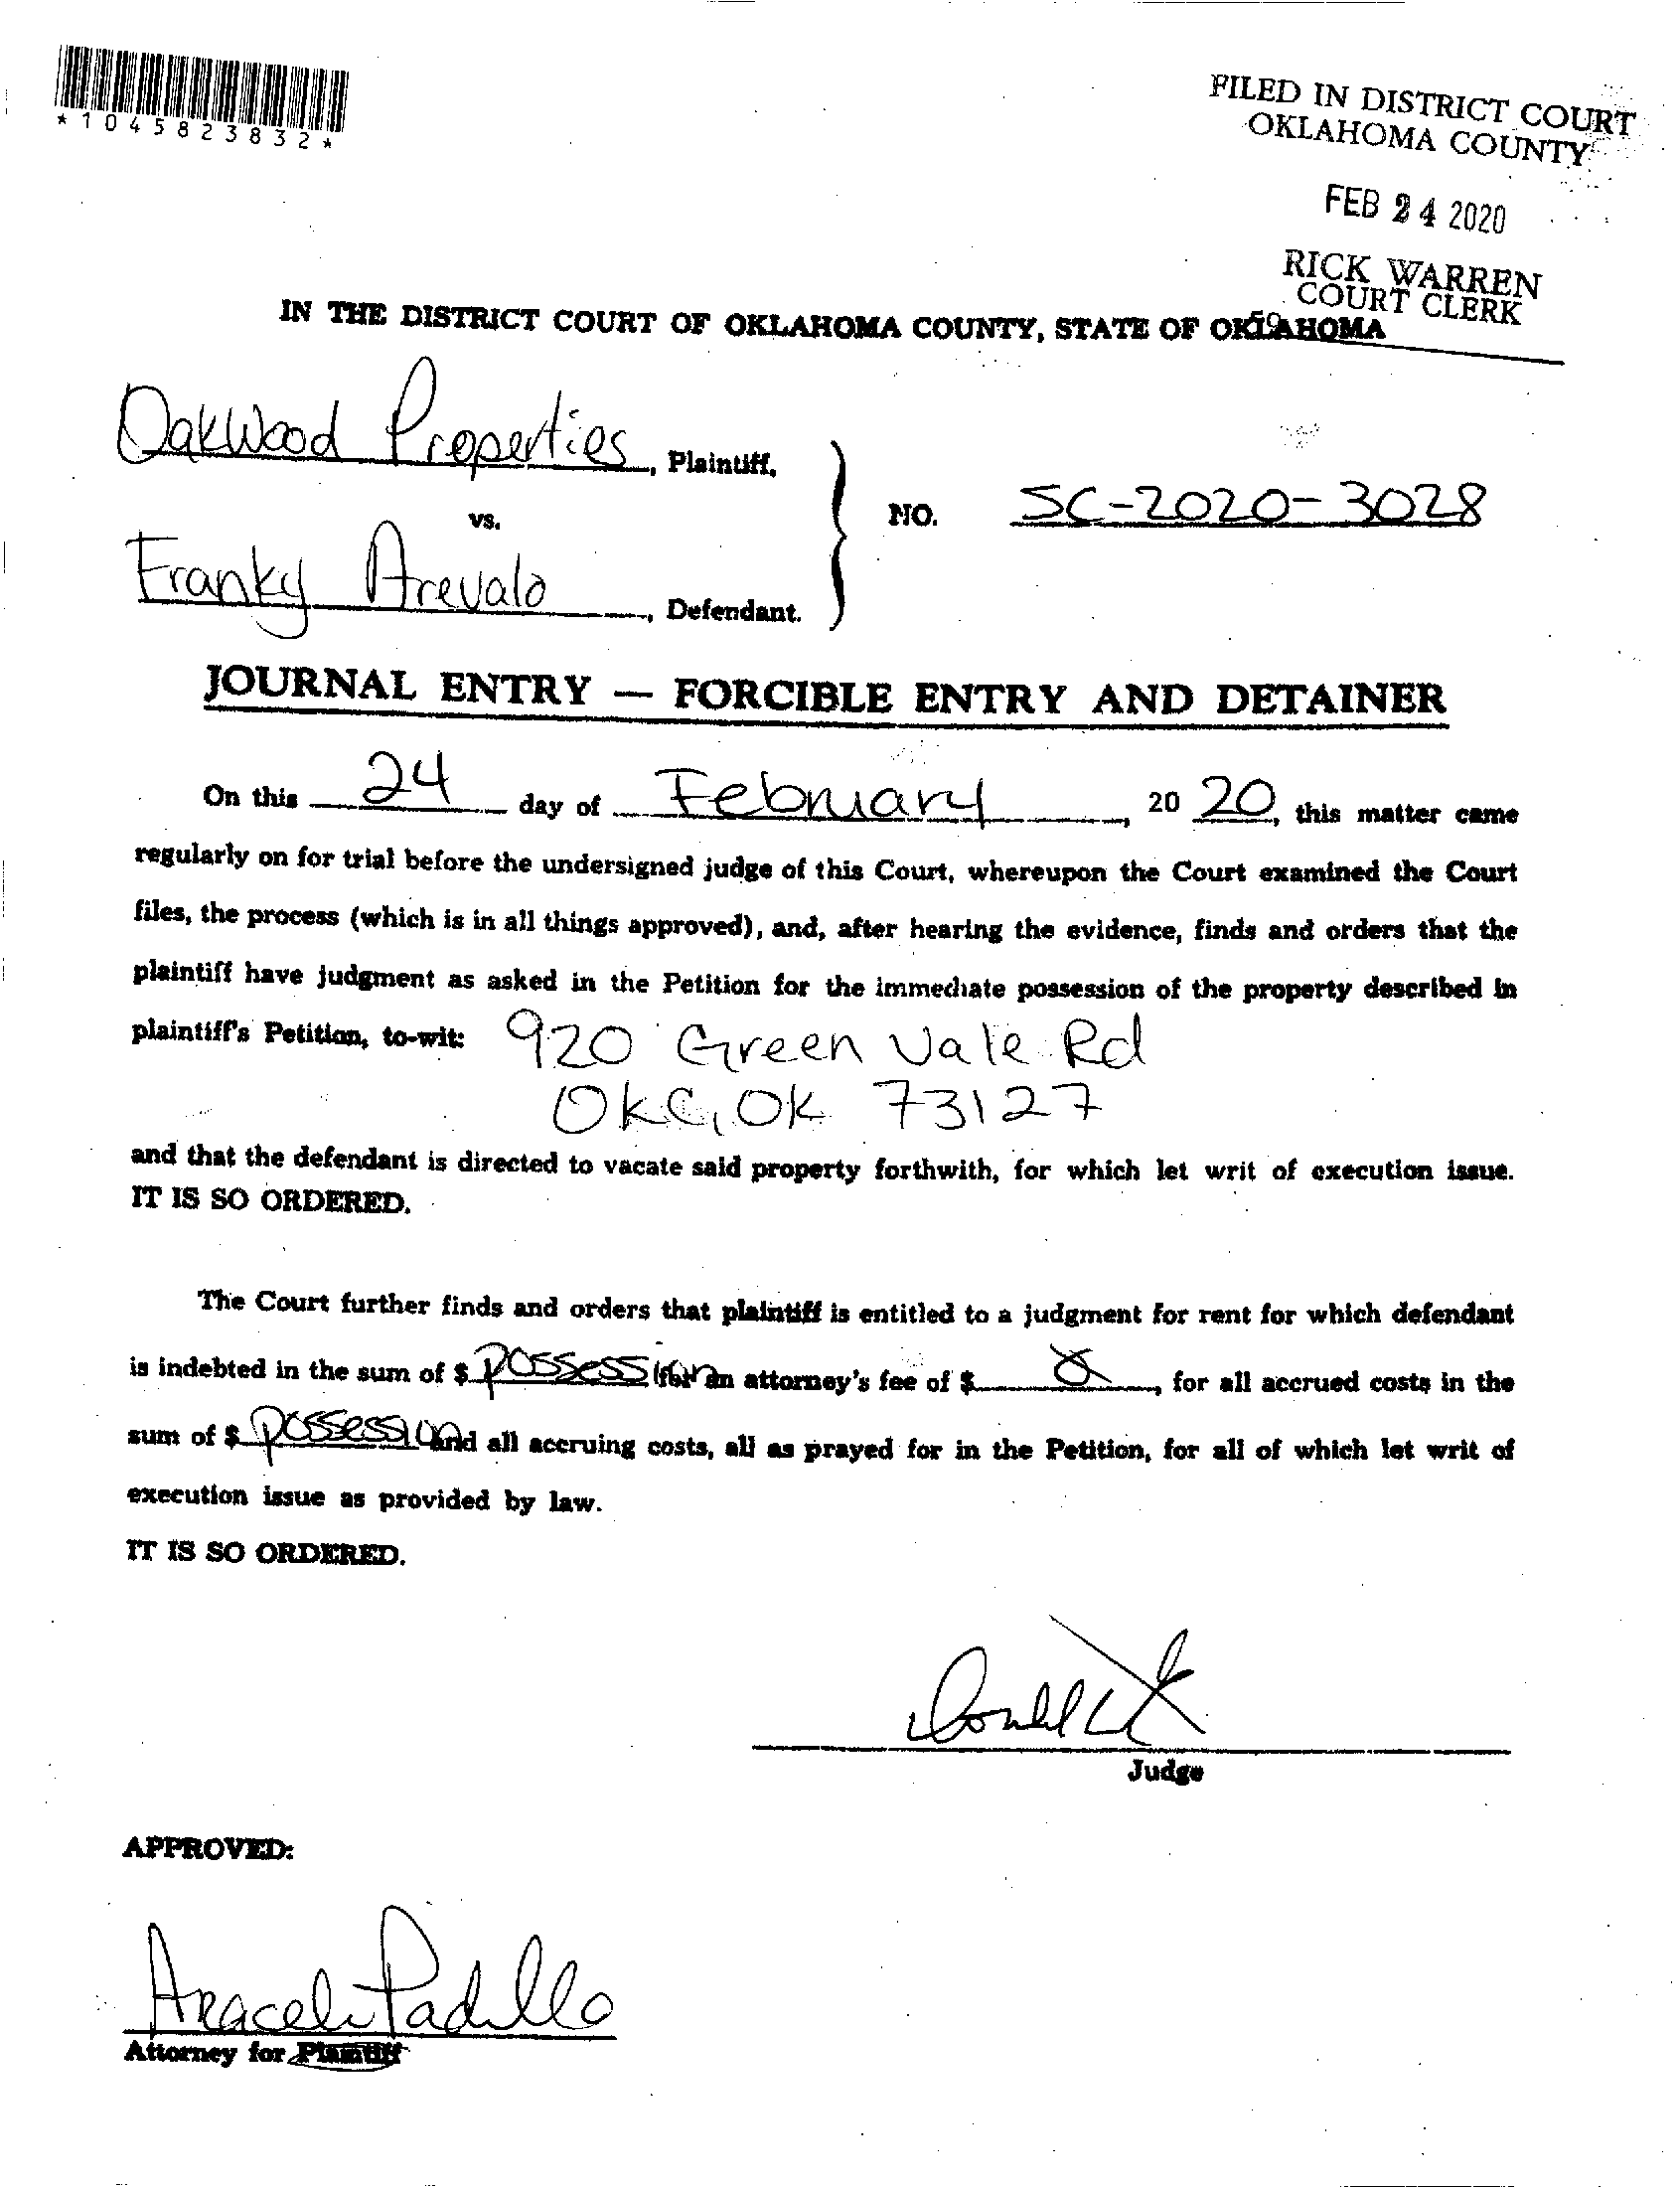 *1045823832*
FILED IN DISTRICT COURT
OKLAHOMA COUNTY
FEB 24 2020
RICK WARREN
COURT CLERK
IN THE DISTRICT COURT OF OKLAHOMA COUNTY, STATE OF OKLAHOMA
Oakwood Properties, Plaintiff,
vs.
NO. SC-2020-3028
Franky Arevalo, Defendant.
JOURNAL ENTRY — FORCIBLE ENTRY AND DETAINER
On this 24 day of February, 20 20, this matter came
regularly on for trial before the undersigned judge of this Court, whereupon the Court examined the Court
files, the process (which is in all things approved), and, after hearing the evidence, finds and orders that the
plaintiff have judgment as asked in the Petition for the immediate possession of the property described in
plaintiff's Petition, to-wit: 920 Green Vale Rd
OKC, OK 73127
and that the defendant is directed to vacate said property forthwith, for which let writ of execution issue.
IT IS SO ORDERED.
The Court further finds and orders that plaintiff is entitled to a judgment for rent for which defendant
is indebted in the sum of $ possession for an attorney's fee of $ , for all accrued costs in the
sum of $ possession and all accruing costs, all as prayed for in the Petition, for all of which let writ of
execution issue as provided by law.
IT IS SO ORDERED.
Judge
APPROVED:
Araceli Padilla
Attorney for Plaintiff